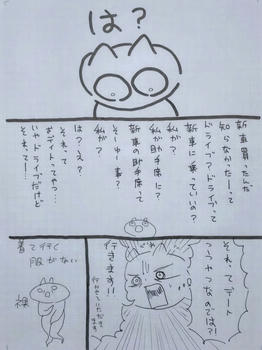 は？
新車買ったんだ
知らなかったーって
ドライブ？ドライブって
新車に乗っていいの？
私が？
私が助手席に？
新車の助手席って
そーゆー事？
私が？
は？え？
それって
おデートってやつ…
いやドライブだけど
それって…
それってデート
つうやつなのでは?!
行きます!!
行かせていただきます
着て行く
服がない
裸